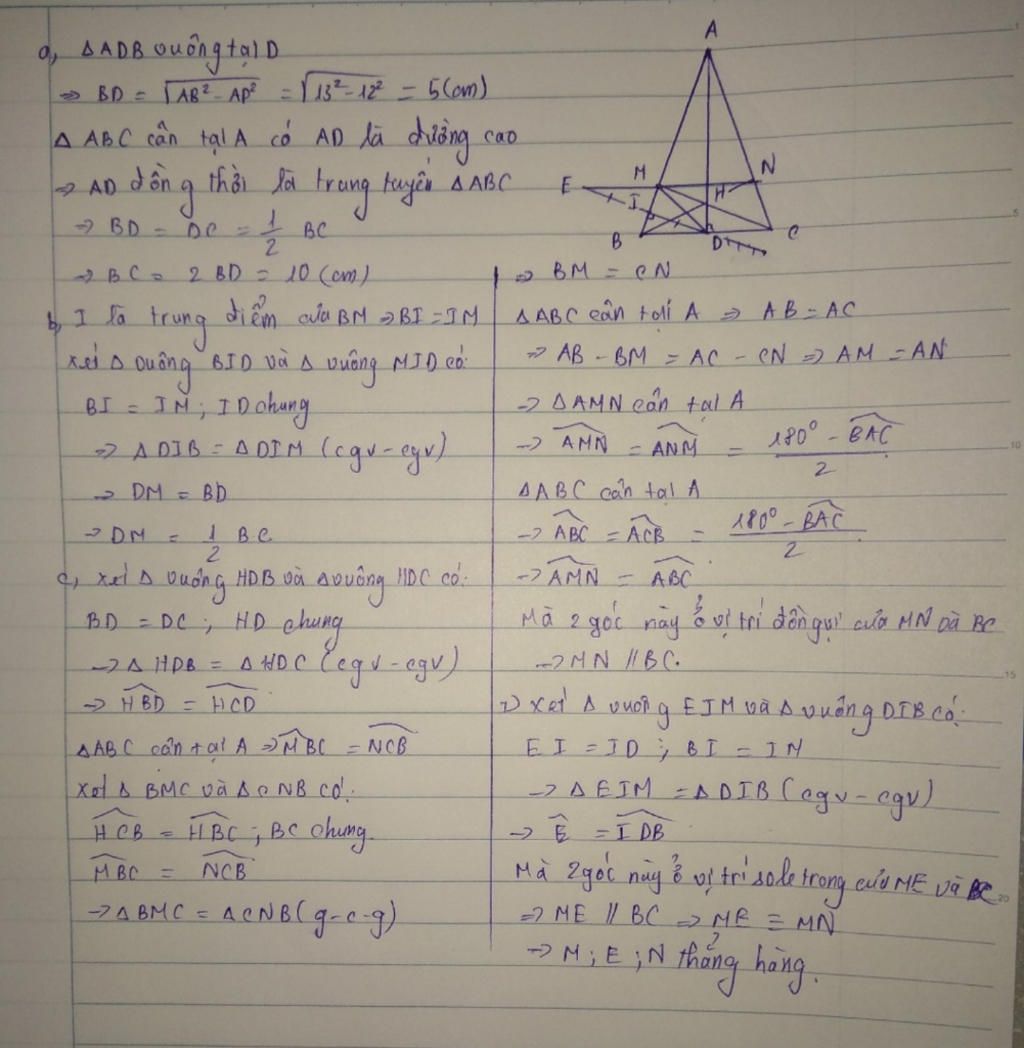 A
M
N
E
I
H
B
D
C
a, ΔADB vuông tại D
=> BD = √(AB² - AD²) = √(13² - 12²) = 5(cm)
Δ ABC cân tại A có AD là đường cao
=> AD đồng thời là trung tuyến ΔABC
=> BD = DC = 1/2 BC
=> BC = 2 BD = 10 (cm)
b, I là trung điểm của BM => BI = IM
xét Δ vuông BID và Δ vuông MID có:
BI = IM ; ID chung
=> Δ DIB = Δ DIM (cgv - cgv)
=> DM = BD
=> DM = 1/2 BC
c, xét Δ vuông HDB và Δ vuông HDC có:
BD = DC ; HD chung
=> Δ HDB = Δ HDC (cgv - cgv)
=> \widehat{HBD} = \widehat{HCD}
ΔABC cân tại A => \widehat{MBC} = \widehat{NCB}
xét Δ BMC và Δ CNB có:
\widehat{HCB} = \widehat{HBC} ; BC chung
\widehat{MBC} = \widehat{NCB}
=> ΔBMC = ΔCNB (g-c-g)
=> BM = CN
ΔABC cân tại A => AB = AC
=> AB - BM = AC - CN => AM = AN
=> ΔAMN cân tại A
=> \widehat{AMN} = \widehat{ANM} = (180° - \widehat{BAC})/2
ΔABC cân tại A
=> \widehat{ABC} = \widehat{ACB} = (180° - \widehat{BAC})/2
=> \widehat{AMN} = \widehat{ABC}
Mà 2 góc này ở vị trí đồng vị của MN và BC
=> MN // BC.
2) xét Δ vuông EIM và Δ vuông DIB có:
EI = ID ; BI = IM
=> Δ EIM = Δ DIB (cgv - cgv)
=> \widehat{E} = \widehat{IDB}
Mà 2 góc này ở vị trí sole trong của ME và BC
=> ME // BC => ME ≡ MN
=> M ; E ; N thẳng hàng.